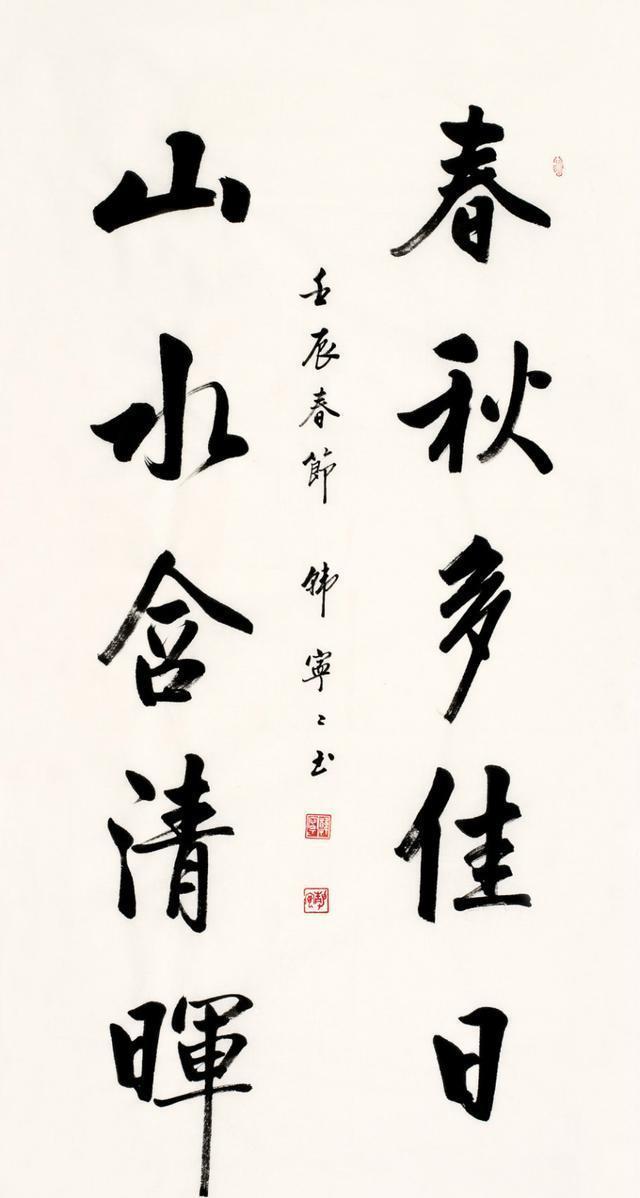 春秋多佳日
山水含清暉
壬辰春節 韓寧寧书